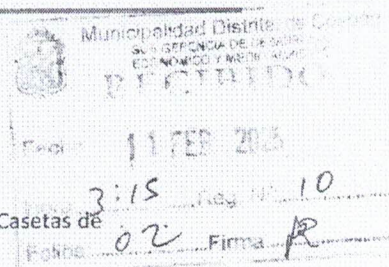 Municipalidad Distrital de
SUB GERENCIA DE DESARROLLO
ECONOMICO Y MEDIO
RECIBIDO
Fecha 11 FEB 2025
3:15 Reg. Nº 10
Casetas de
Folios 02 Firma